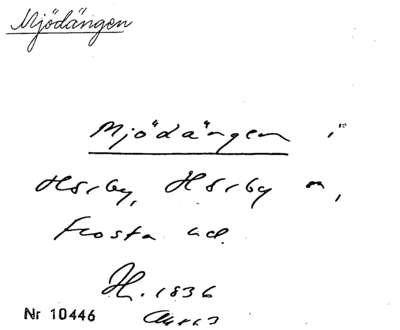 Mjödängen
Mjödängen i
Hörby, Hörby sn,
Frosta hd.
H. 1836
Nr 10446